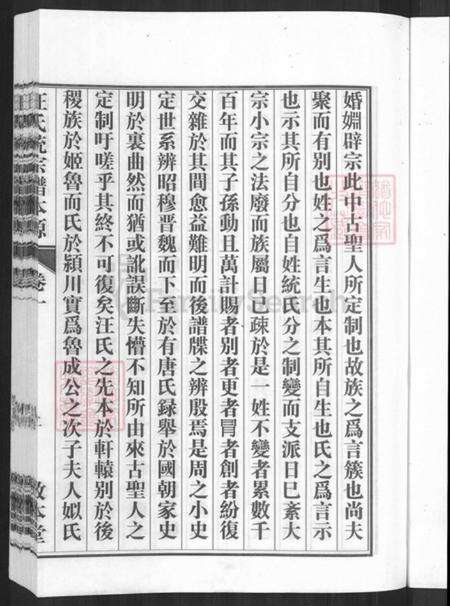 婚姻辟宗此中古聖人所定制也故族之爲言簇也尚夫
聚而有别也姓之爲言生也本其所自生也氏之爲言示
也示其所自分也自姓統氏分之制變而支派日巳紊大
宗小宗之法廢而族屬日已疎於是一姓不變者累數千
百年而其子孫動且萬計賜者别者更者冒者創者紛復
交雜於其間愈益難明而後譜牒之辨殷焉是周之小史
定世系辨昭穆晋魏而下至於有唐氏録舉於國朝家史
明於裏曲然而猶或訛誤斷失懵不知所由來古聖人之
定制吁嗟乎其終不可復矣汪氏之先本於軒轅别於後
稷族於姬魯而氏於潁川實爲魯成公之次子夫人姒氏
汪氏統宗譜本源 卷一
敦本堂
FamilySearch